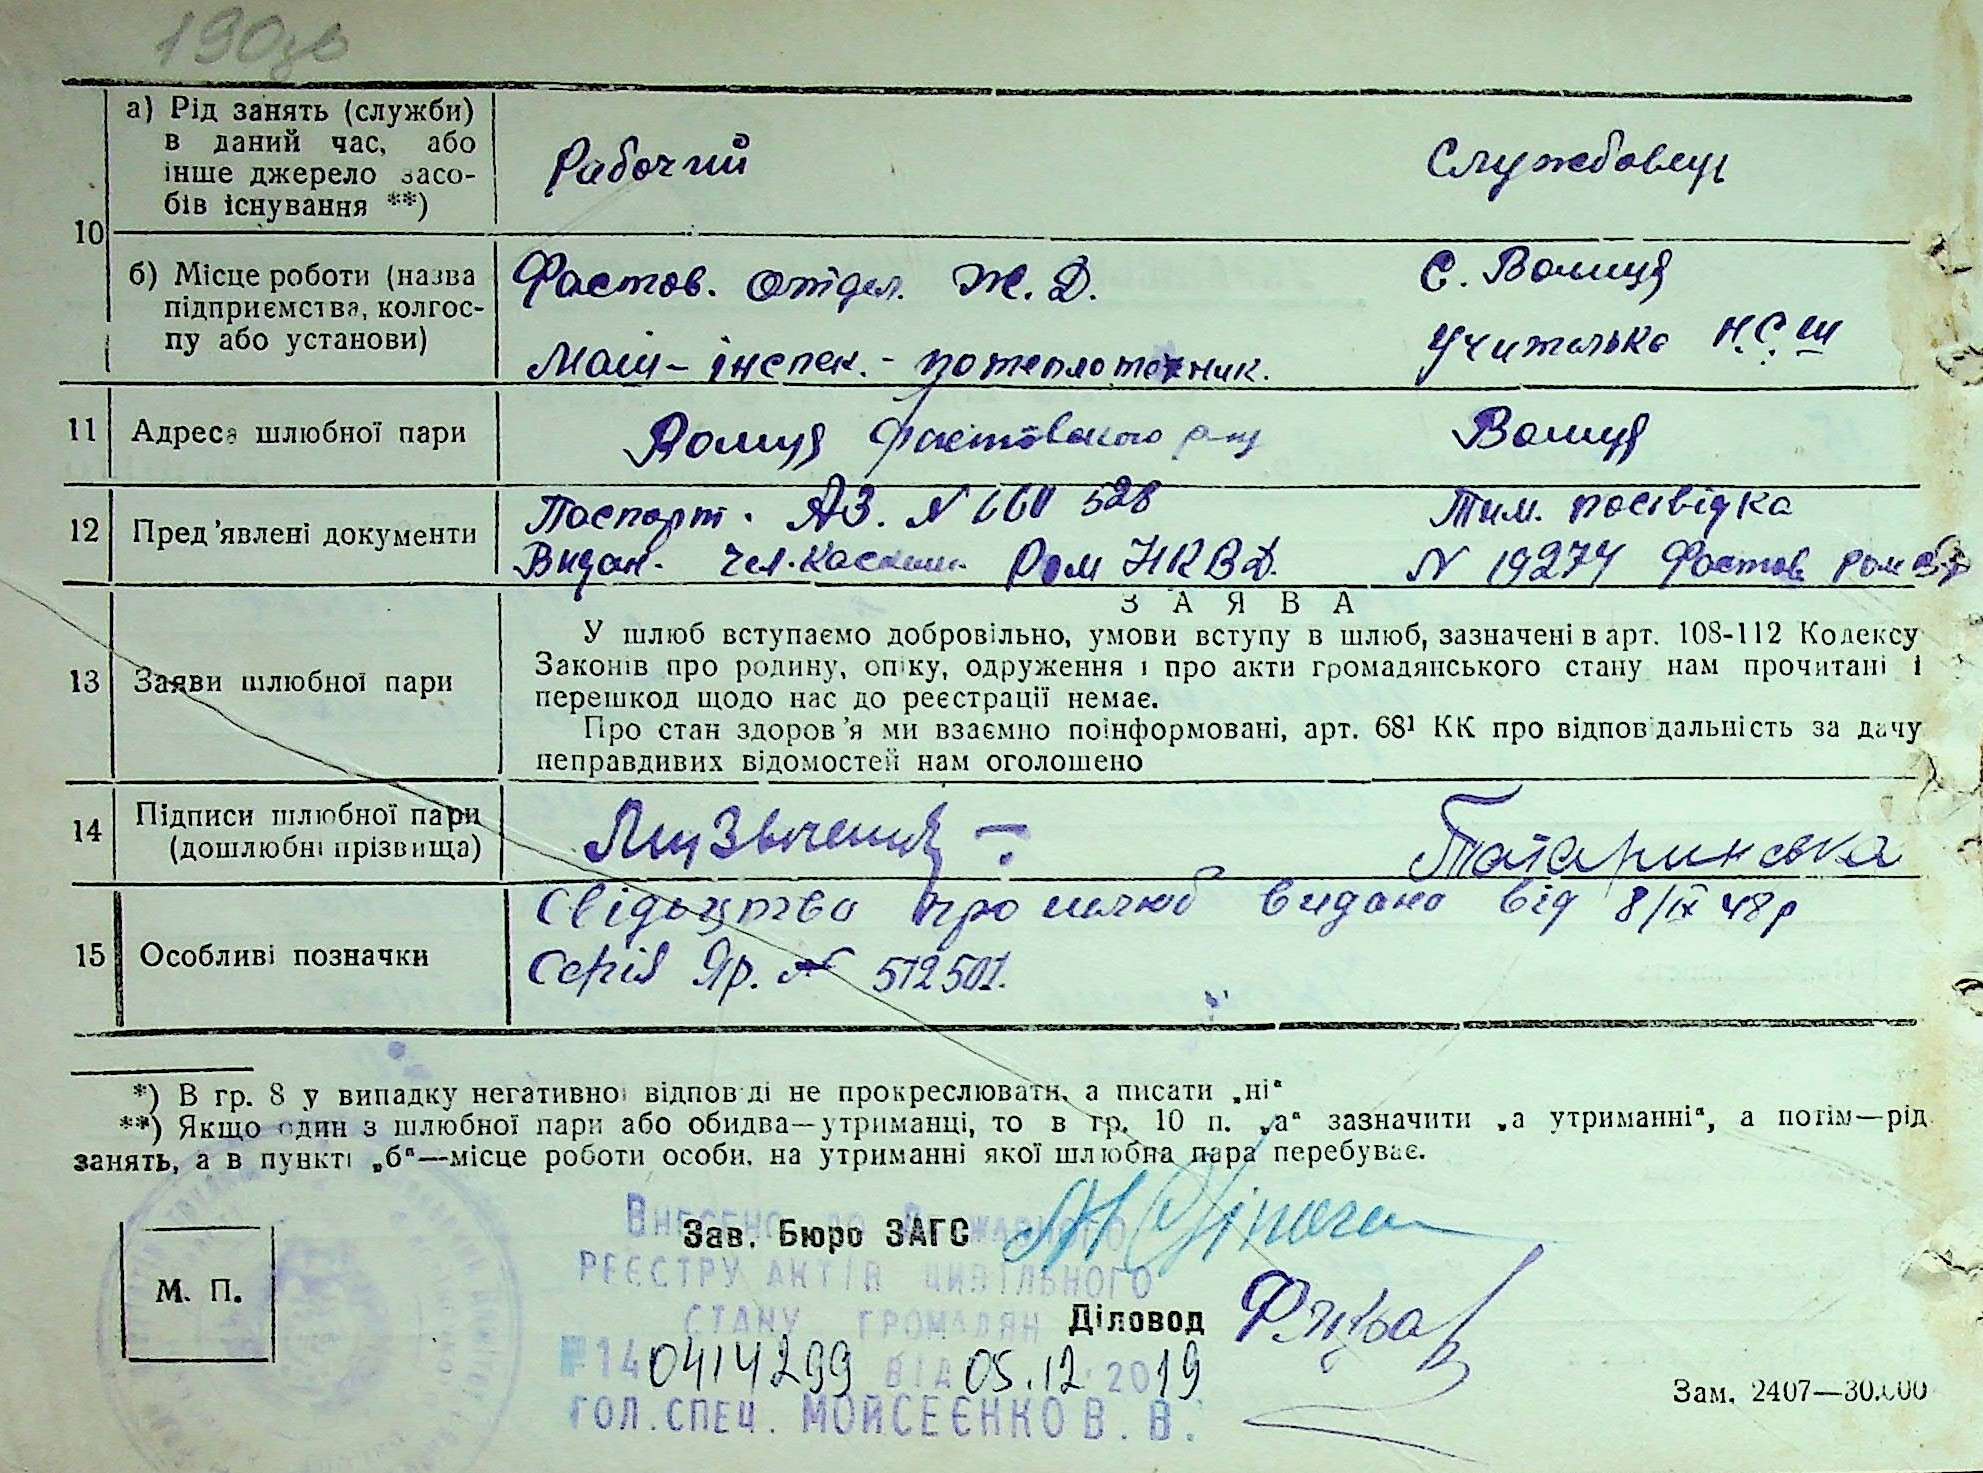 190зв
10
а) Рід занять (служби)
в даний час, або
інше джерело засо-
бів існування **)
Рабочий
Службовиця
б) Місце роботи (назва
підприємства, колгос-
пу або установи)
Фастов. отдел. Ж. Д.
Маш-інспек.-потеплотехник.
С. Волиця
Учителька Н.С.Ш
11 Адреса шлюбної пари
Волиця Фастовського р-ну
Волиця
12 Пред'явлені документи
Паспорт. АЗ. N 528
Видан. РОМ НКВД.
Тим. посвідка
N 19274 Фастов. РОМ
13 Заяви шлюбної пари
ЗАЯВА
У шлюб вступаємо добровільно, умови вступу в шлюб, зазначені в арт. 108-112 Кодексу
Законів про родину, опіку, одруження і про акти громадянського стану нам прочитані і
перешкод щодо нас до реєстрації немає.
Про стан здоров'я ми взаємно поінформовані, арт. 68¹ КК про відповідальність за дачу
неправдивих відомостей нам оголошено
14 Підписи шлюбної пари
(дошлюбні прізвища)
Татаринська
15 Особливі позначки
Свідоцтво про шлюб видано від 8/IX 48р
Серія Яр. № 512501.
*) В гр. 8 у випадку негативної відповіді не прокреслювати, а писати „ні“
**) Якщо один з шлюбної пари або обидва—утриманці, то в гр. 10 п. „а“ зазначити „а утриманні“, а потім—рід
занять, а в пункті „б“—місце роботи особи, на утриманні якої шлюбна пара перебуває.
М. П.
Зав. Бюро ЗАГС
Діловод
Внесено до Державного
реєстру актів цивільного
стану громадян
№14 0414299 від 05.12.2019
Гол. спец. Мойсеєнко В. В.
Зам. 2407—30.000